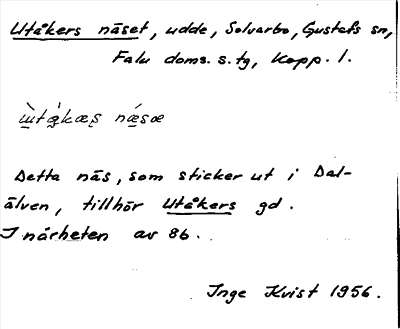 Utåkers näset, udde, Solvarbo, Gustafs sn,
Falu doms. s. tg, Kopp. l.
Detta näs, som sticker ut i Dal-
älven, tillhör Utåkers gd.
I närheten av 86.
Inge Kvist 1956.